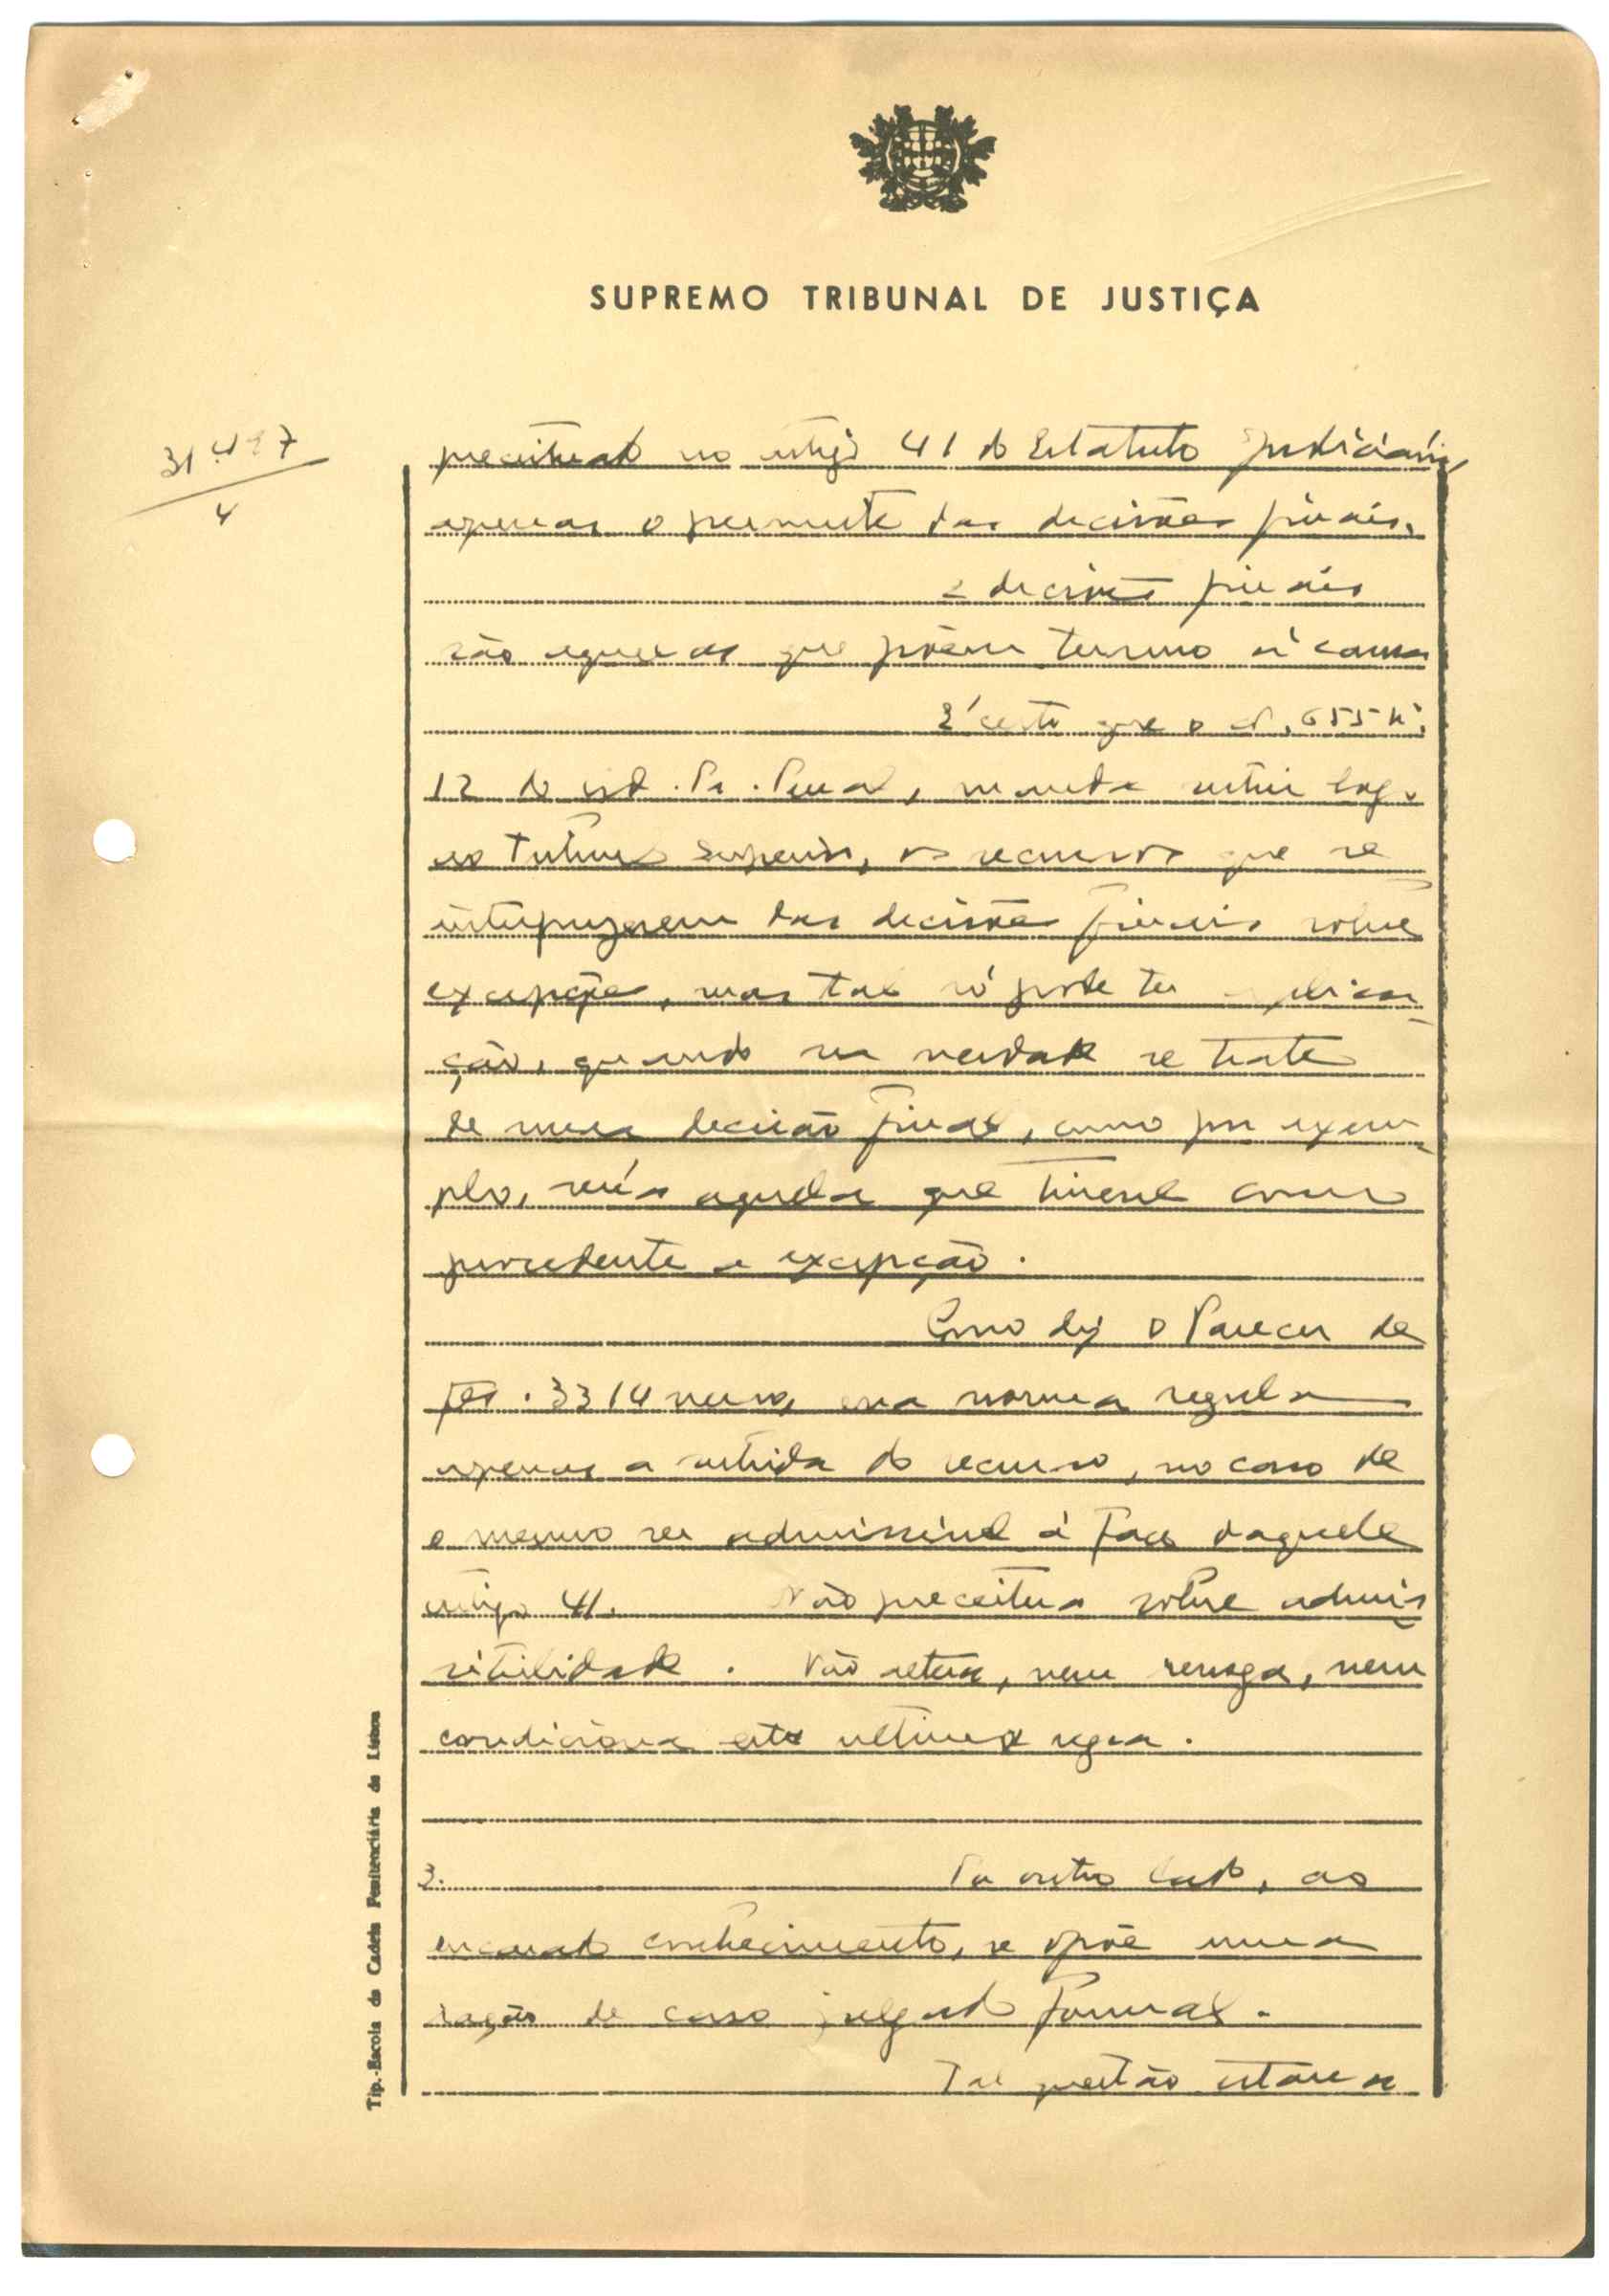 SUPREMO TRIBUNAL DE JUSTIÇA
4
preceituado no artigo 41 do Estatuto Judiciário,
apenas o permite das decisões finais.
E decisões finais
são aquelas que põem termo à causa
É certo que o art. 655 nº
12 do Cod. Pr. Penal, manda subir logo
ao Tribunal Superior, os recursos que se
interpuzerem das decisões finais sobre
excepções, mas tal só pode ter aplica-
ção, quando na verdade se trate
de uma decisão final, como por exem-
plo, seria aquela que tivesse como
procedente a excepção.
Como diz o Parecer de
fls. 3314 verso, essa norma regula
apenas a subida do recurso, no caso de
o mesmo ser admissivel à face daquele
artigo 41. Não preceitua sobre admis-
sibilidade. Não altera, nem revoga, nem
condiciona esta ultima regra.
3. Por outro lado, ao
encarado conhecimento, se opõe uma
razão de caso julgado formal.
Tal questão estava
Tip.-Escola da Cadeia Penitenciária de Lisboa